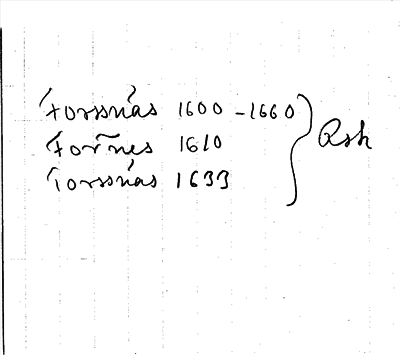 Forssnäs 1600-1660
Forñes 1610
Forssnäs 1633
Rsk